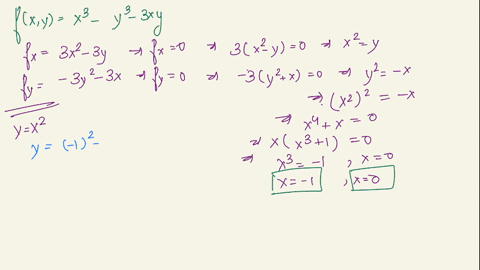 f(x,y) = x³ - y³ - 3xy
fx = 3x² - 3y ⇒ fx = 0 ⇒ 3(x² - y) = 0 ⇒ x² = y
fy = -3y² - 3x ⇒ fy = 0 ⇒ -3(y² + x) = 0 ⇒ y² = -x
⇒ (x²)² = -x
y = x²
⇒ x⁴ + x = 0
y = (-1)² -
⇒ x(x³ + 1) = 0
⇒ x³ = -1 , x = 0
x = -1 , x = 0